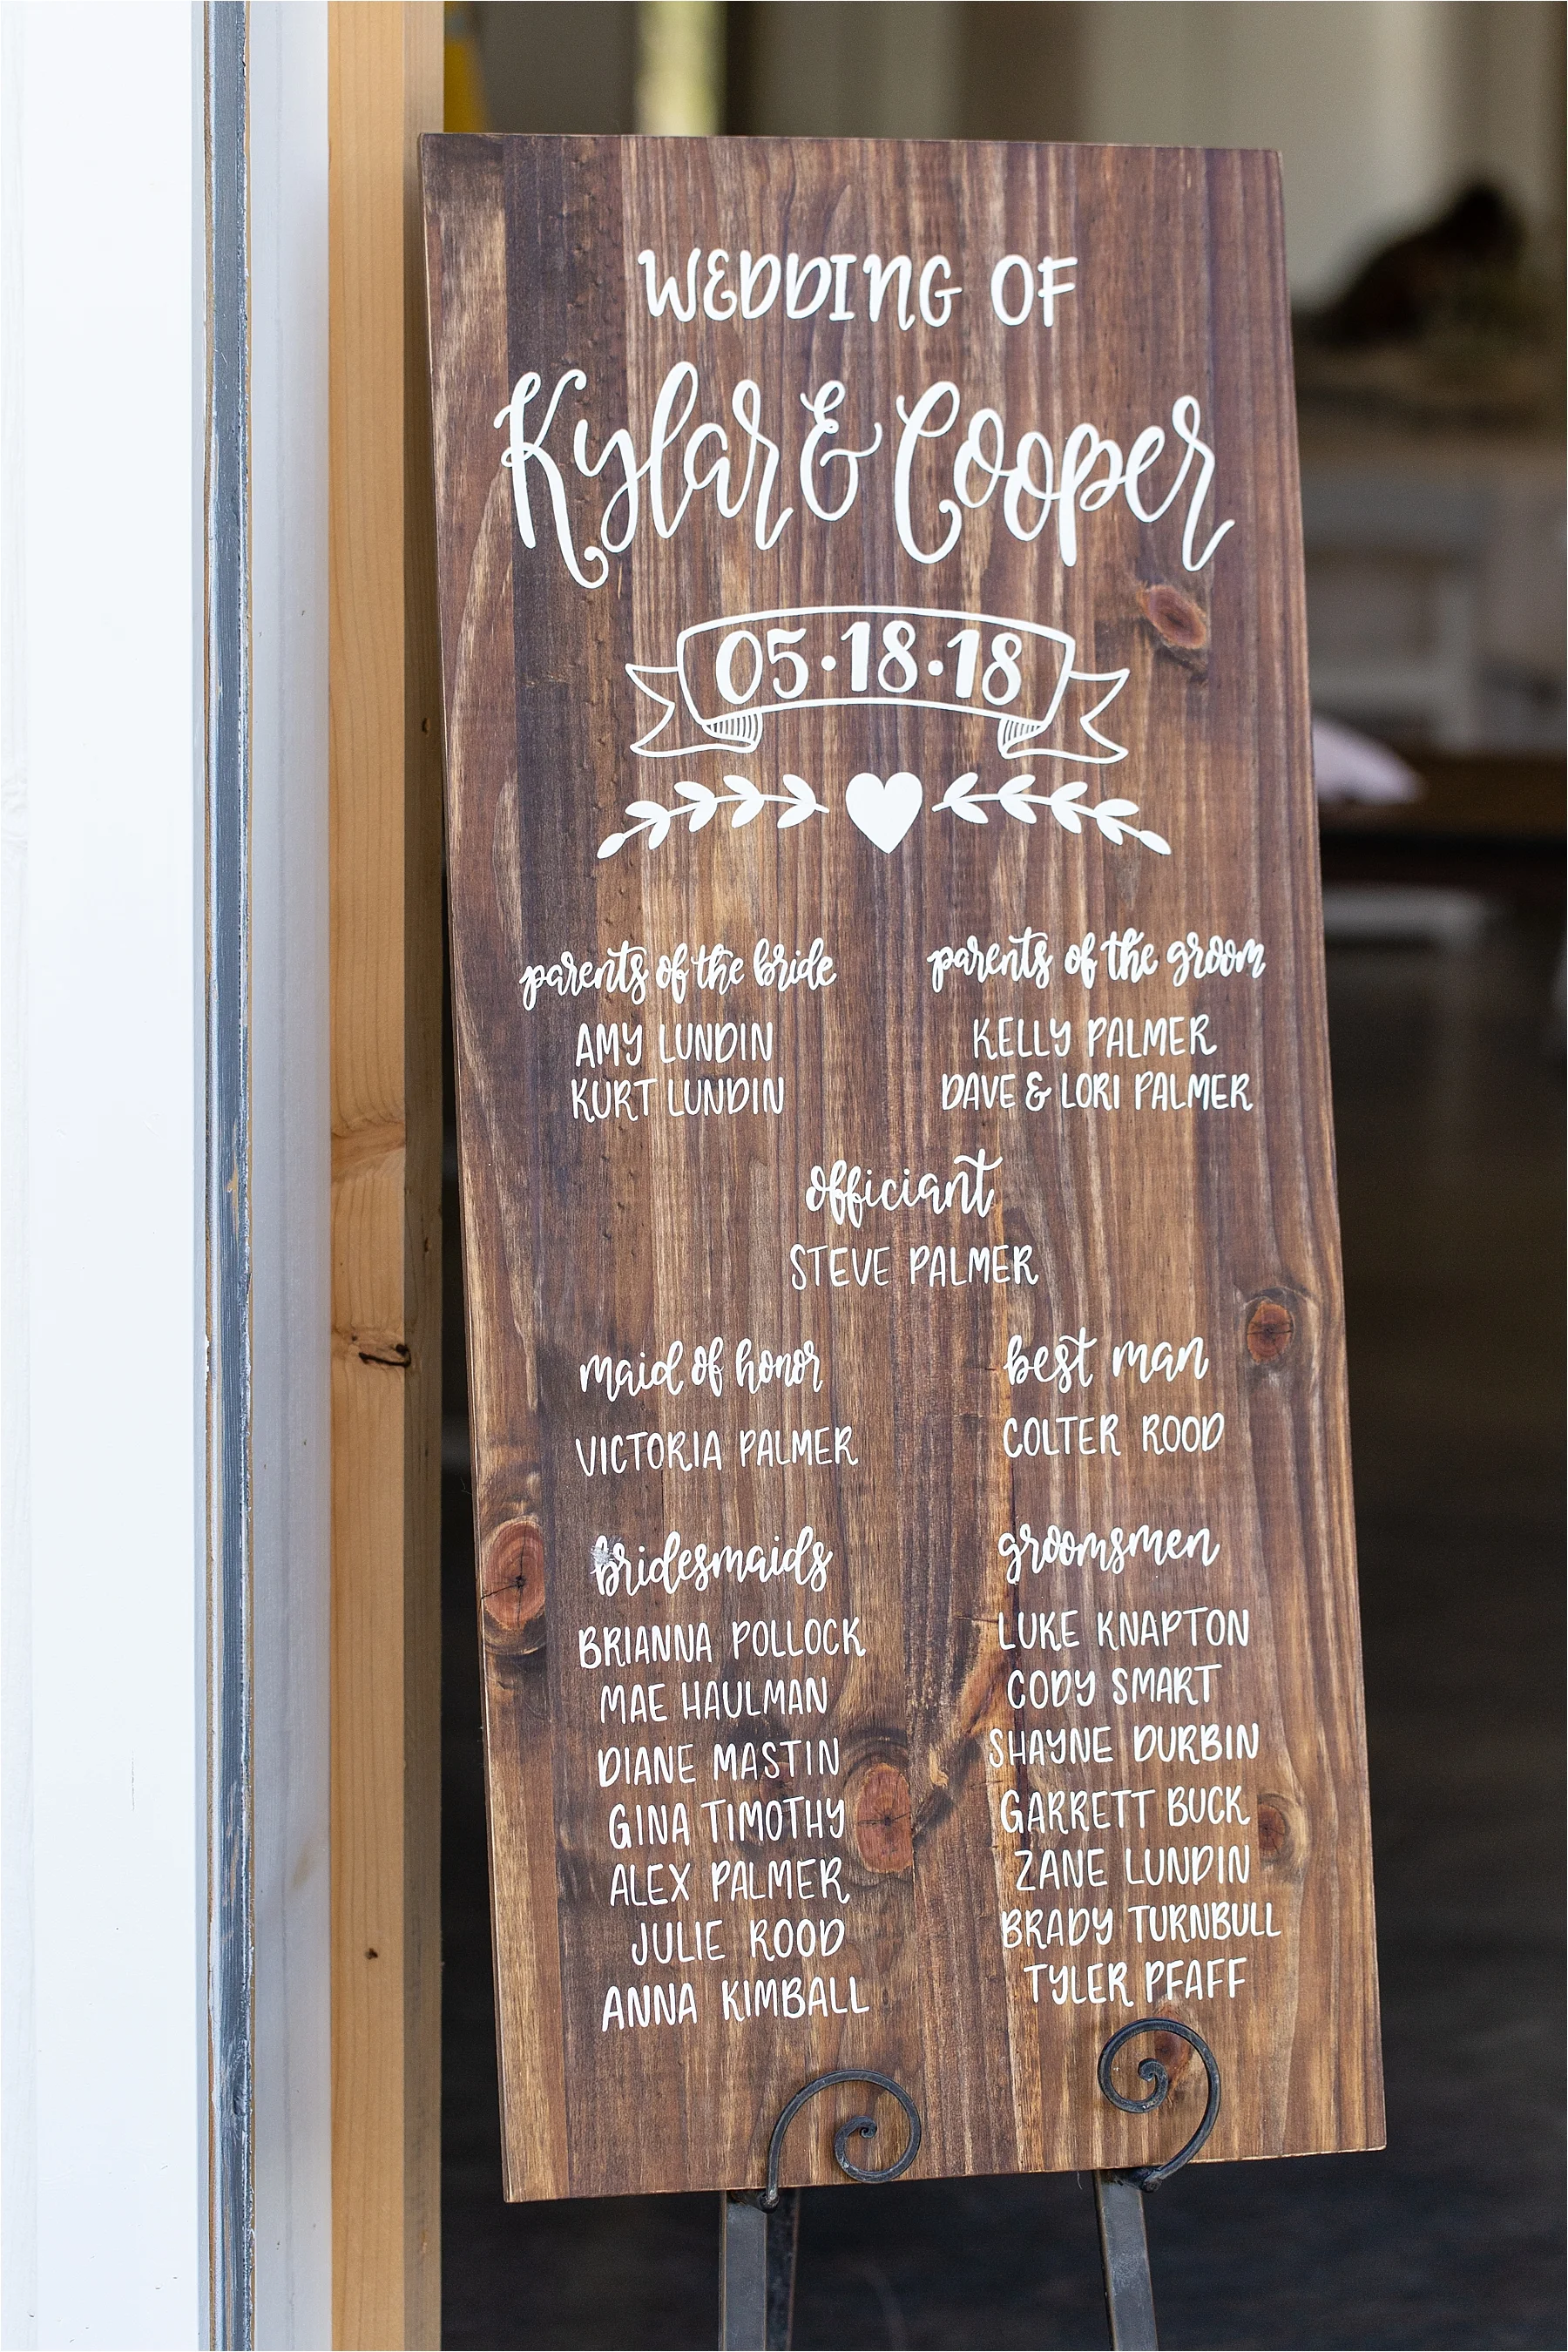 WEDDING OF
Kylar & Cooper
05·18·18
parents of the bride
AMY LUNDIN
KURT LUNDIN
parents of the groom
KELLY PALMER
DAVE & LORI PALMER
officiant
STEVE PALMER
maid of honor
VICTORIA PALMER
best man
COLTER ROOD
bridesmaids
BRIANNA POLLOCK
MAE HAULMAN
DIANE MASTIN
GINA TIMOTHY
ALEX PALMER
JULIE ROOD
ANNA KIMBALL
groomsmen
LUKE KNAPTON
CODY SMART
SHAYNE DURBIN
GARRETT BUCK
ZANE LUNDIN
BRADY TURNBULL
TYLER PFAFF